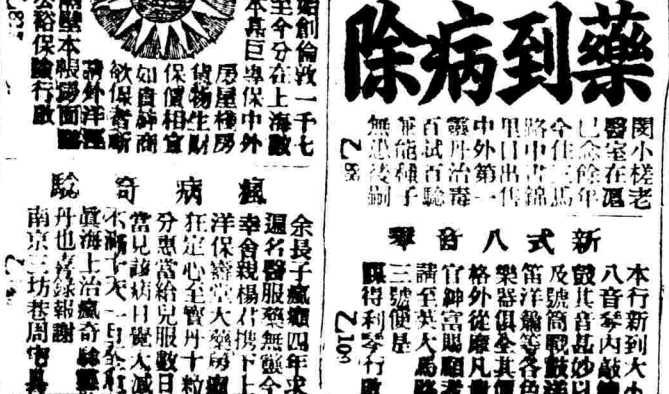 藥到病除
閔小槎老
醫室在滬
已念餘年
今住三馬
路中書錦
里日出售
中外第一
靈丹治毒
百試百驗
兼能種子
無恐後嗣
Z
新式八音琴
本行新到大小
八音琴內敲鐘
鼓其音甚妙以
及號筒戰鼓洋
笛洋簫等各色
樂器俱全其價
格外從廉凡貴
官紳富賜顧者
請至英大馬路
三號便是
謀得利琴行啟
Z
始創倫敦一千七
至今分在上海數
本具巨專保中外
房屋棧房
貨物生財
保價相宜
如貴紳商
欲保者新
請外洋涇
裕保險行啟
瘋病奇驗
余長子瘋癲四年求
遍名醫服藥無靈今
幸會親楊君攜下上
洋保壽堂大藥房
狂定心至寶丹十粒
分惠當給兒服數日
當見該病日覺大減
不滿十天一旦全愈
真海上治瘋奇
丹也專錄報謝
南京三坊巷周